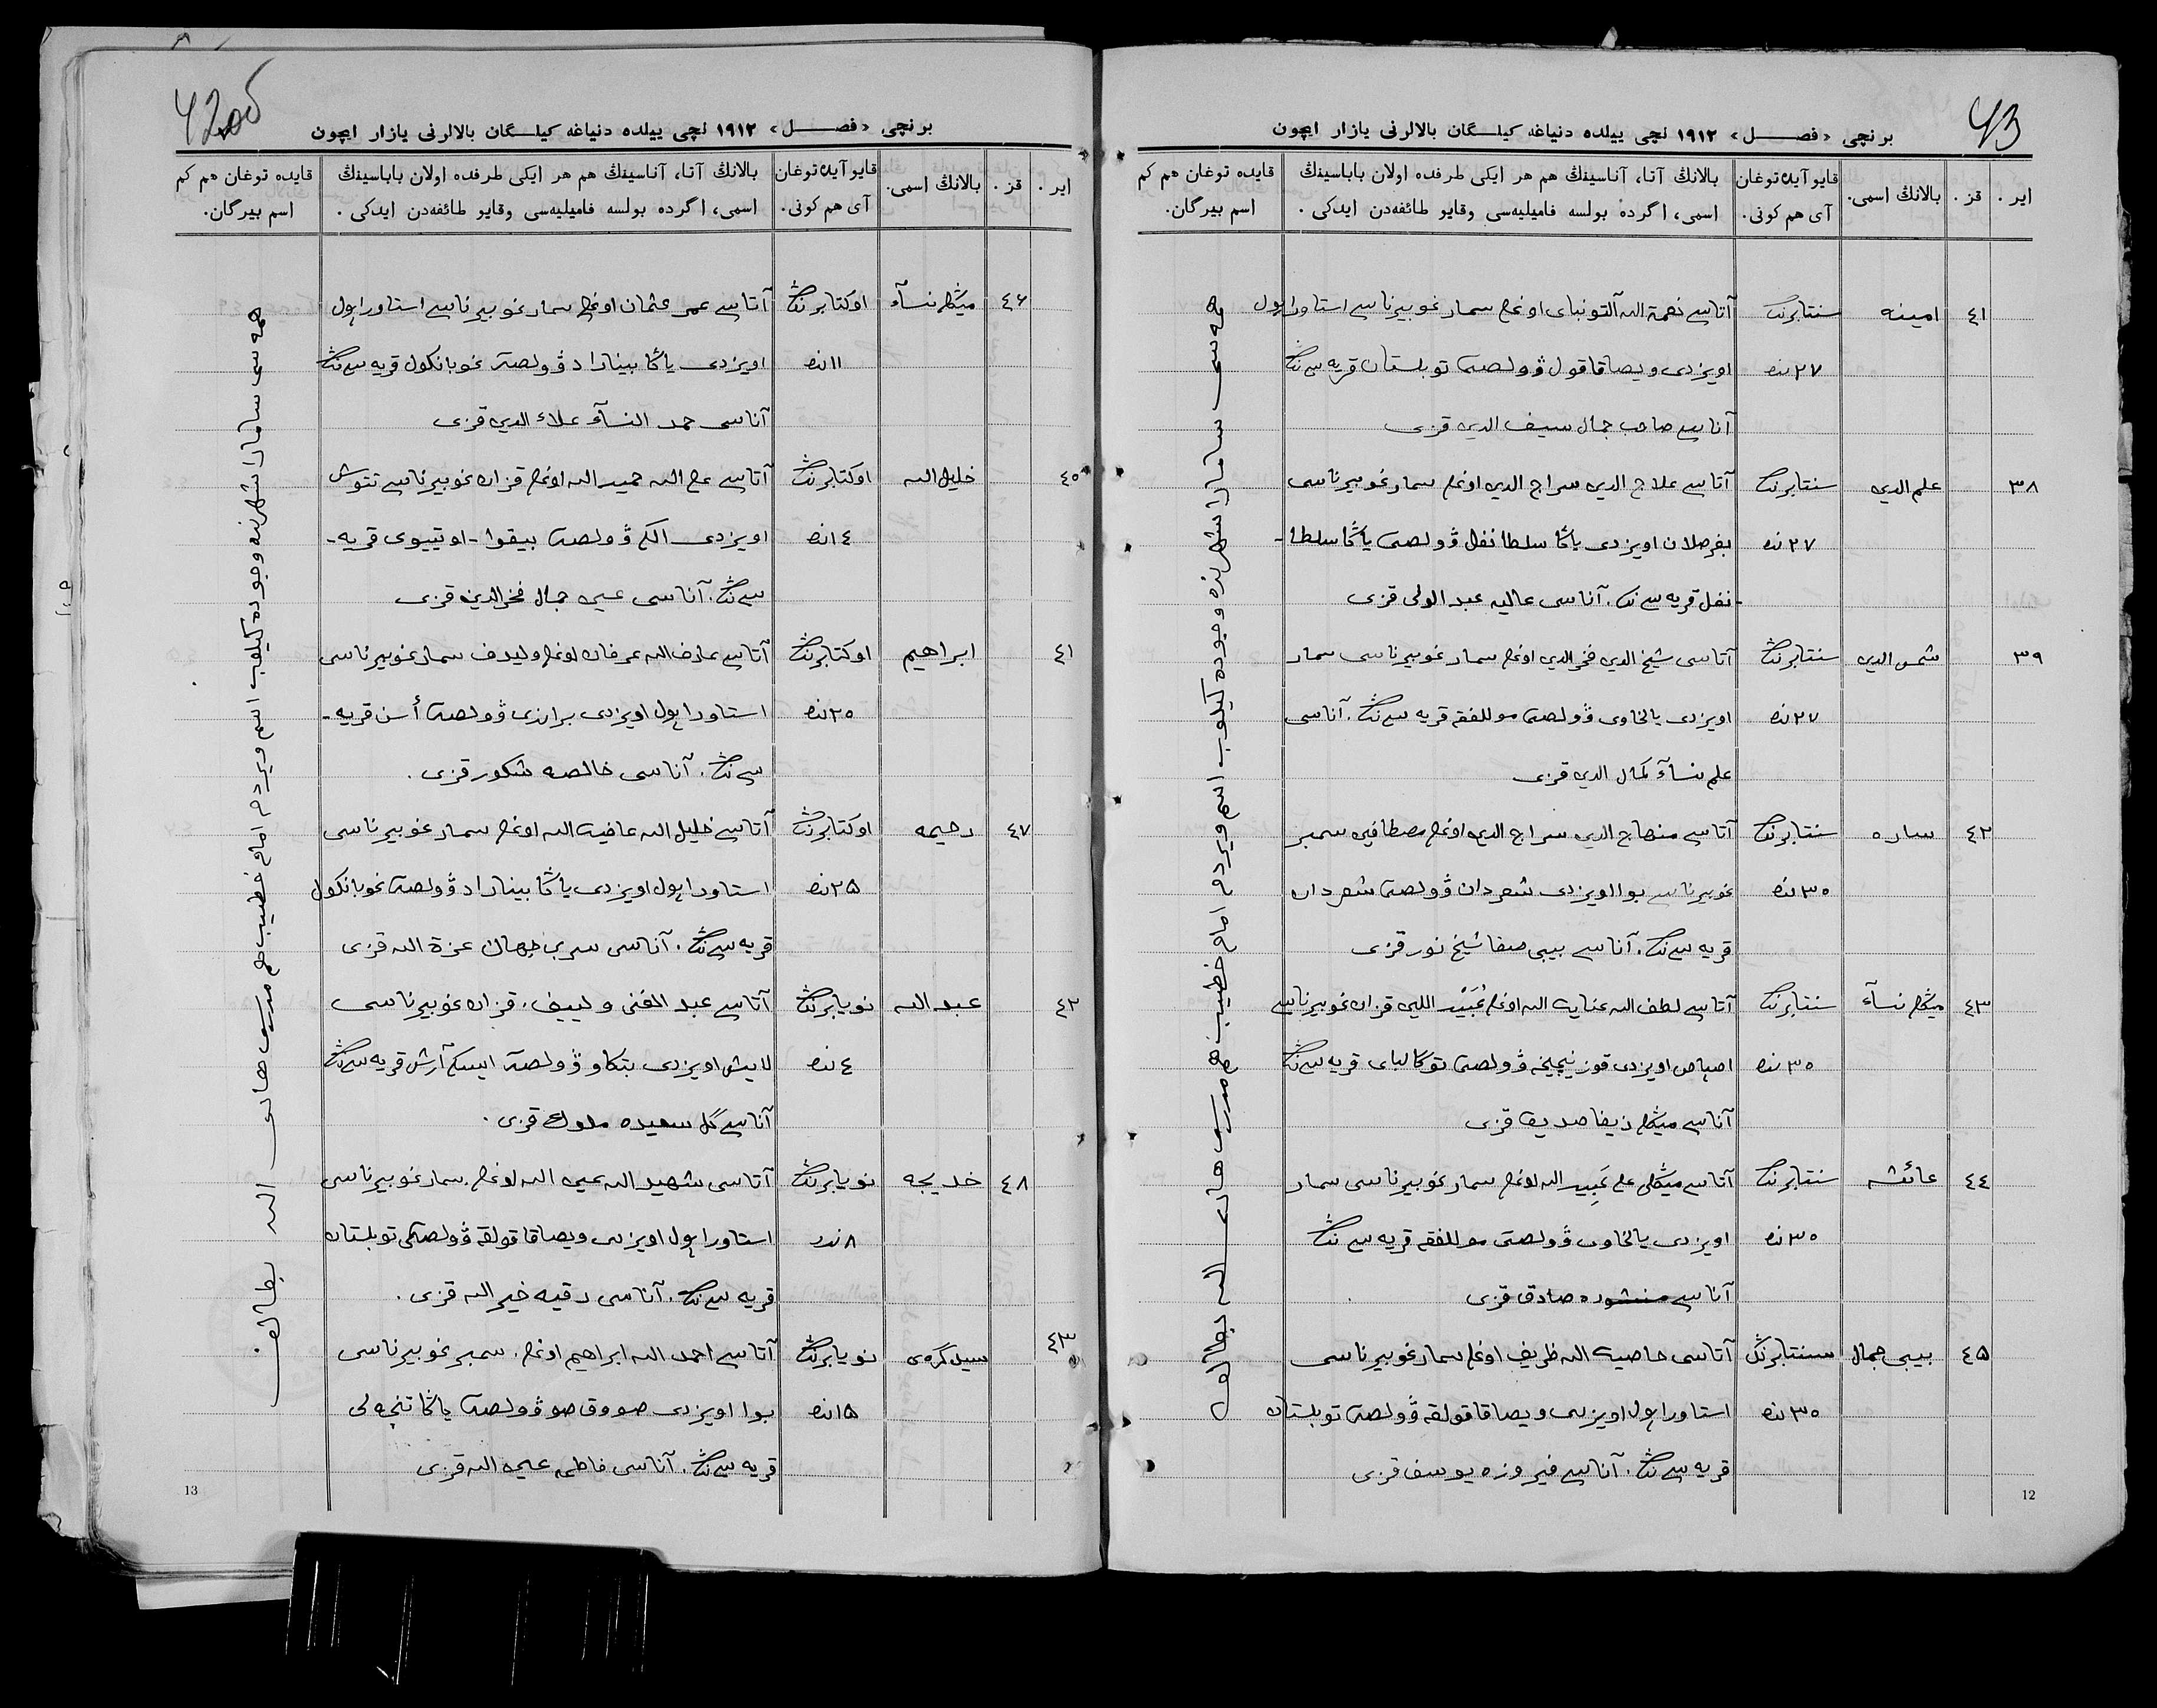 43
برنچی «فصل» ۱۹۱۲ نچی ییلده دنیاغه کیلگان بالالرنی یازار ایچون
ایر .
قز .
بالانڭ اسمی.
قایو آیده توغان
آی هم کونی.
بالانڭ آتا، آناسینڭ هم هر ایکی طرفده اولان باباسینڭ
اسمی، اگرده بولسه فامیلیه‌سی وقایو طائفه‌دن ایدکی .
قایده توغان هم کم
اسم بیرگان.
٤١ امینه سنتابرنڭ آتاسی نعمة الله آلتونبای اوغلی سمار غوبیرناسی استاوراپول
٢٧ نده اویزدی ویصاقاقول ڤولصت توبلستان قریه سی نڭ
آناسی صاحب جمال سیف الدین قزی
٣٨ علم الدین سنتابرنڭ آتاسی علاج الدین سراج الدین اوغلی سمار غوبیرناسی
٢٧ نده بغرصلان اویزدی یاڭا سلطانغل ڤولصت یاڭا سلطا-
-نغل قریه سی نڭ. آناسی عالیه عبد الولی قزی
٣٩ شمس الدین سنتابرنڭ آتاسی شیخ الدین فخر الدین اوغلی سمار غوبیرناسی سمار
٢٧ نده اویزدی یالخاوی ڤولصت موللفقه قریه سی نڭ. آناسی
علم نسآء کمال الدین قزی
٤٢ ساره سنتابرنڭ آتاسی منهاج الدین سراج الدین اوغلی مصطافین سمبر
٣٠ نده غوبیرناسی بوا اویزدی شعردان ڤولصت شعردان
قریه سی نڭ. آناسی بیبی صفا شیخ نور قزی
٤٣ میڭلی نسآء سنتابرنڭ آتاسی لطف الله عنایت الله اوغلی قزان غوبیرناسی
٣٠ نده اصپاص اویزدی قوزنیچیخه ڤولصت توکالبای قریه سی نڭ
آناسی میڭلی زیفا صدیق قزی
٤٤ عائشه سنتابرنڭ آتاسی میڭلی علی عبید الله اوغلی سمار غوبیرناسی سمار
٣٠ نده اویزدی یالخاوی ڤولصت موللفقه قریه سی نڭ
آناسی منشوره صادق قزی
٤٥ بیبی جمال سنتابرنڭ آتاسی ظریف اوغلی سمار غوبیرناسی
٣٠ نده استاوراپول اویزدی ویصاقاقولقه ڤولصت توبلستان
قریه سی نڭ. آناسی فیروزه یوسف قزی
همه سی سامارا شهرنده وجوده کیلوب اسم ویردم امام خطیب هم مدرس
12
برنچی «فصل» ۱۹۱۲ نچی ییلده دنیاغه کیلگان بالالرنی یازار ایچون
ایر .
قز .
بالانڭ اسمی.
قایو آیده توغان
آی هم کونی.
بالانڭ آتا، آناسینڭ هم هر ایکی طرفده اولان باباسینڭ
اسمی، اگرده بولسه فامیلیه‌سی وقایو طائفه‌دن ایدکی .
قایده توغان هم کم
اسم بیرگان.
٤٦ میڭلی نسآء اوکتابرنڭ آتاسی عمر عثمان اوغلی سمار غوبیرناسی استاوراپول
١١ نده اویزدی یاڭا بیناراد ڤولصت غوبانکول قریه سی نڭ
آناسی حمد النسآء علاء الدین قزی
٤٠ خلیل الله اوکتابرنڭ آتاسی حمید الله اوغلی قزان غوبیرناسی تتوش
١٤ نده اویزدی الکی ڤولصت بیقوا-اوتییوی قریه-
سی نڭ. آناسی عین جمال فخر الدین قزی
٤١ ابراهیم اوکتابرنڭ آتاسی عارف الله عرفان اوغلی ولیدف سمار غوبیرناسی
٢٠ نده استاوراپول اویزدی ڤولصت أسن قریه-
سی نڭ. آناسی خالصه شکور قزی.
٤٧ رحیمه اوکتابرنڭ آتاسی خلیل الله عافیت الله اوغلی سمار غوبیرناسی
٢٥ نده استاوراپول اویزدی یاڭا بیناراد ڤولصت غوبانکول
قریه سی نڭ. آناسی جهان عزة الله قزی
٤٢ عبد الله نویابرنڭ آتاسی عبد الغنی ولییف. قزان غوبیرناسی
٤ نده لایش اویزدی بتکاو ڤولصت ایسکی آرش قریه سی نڭ
آناسی گل سعیده ملوك قزی.
٤٨ خدیجه نویابرنڭ آتاسی شهید الله اوغلی. سمار غوبیرناسی
٨ نده استاوراپول اویزدی ویصاقاقولقه ڤولصتی توبلستان
قریه سی نڭ. آناسی رقیه خیر الله قزی.
٤٣ نویابرنڭ آتاسی احمد الله ابراهیم اوغلی. سمبر غوبیرناسی
١٥ نده بوا اویزدی صووق صو ڤولصت یاڭا تنچه لی
قریه سی نڭ. آناسی فاطمه قزی
همه سی سامارا شهرنده وجوده کیلوب اسم ویردم امام خطیب هم مدرس
13